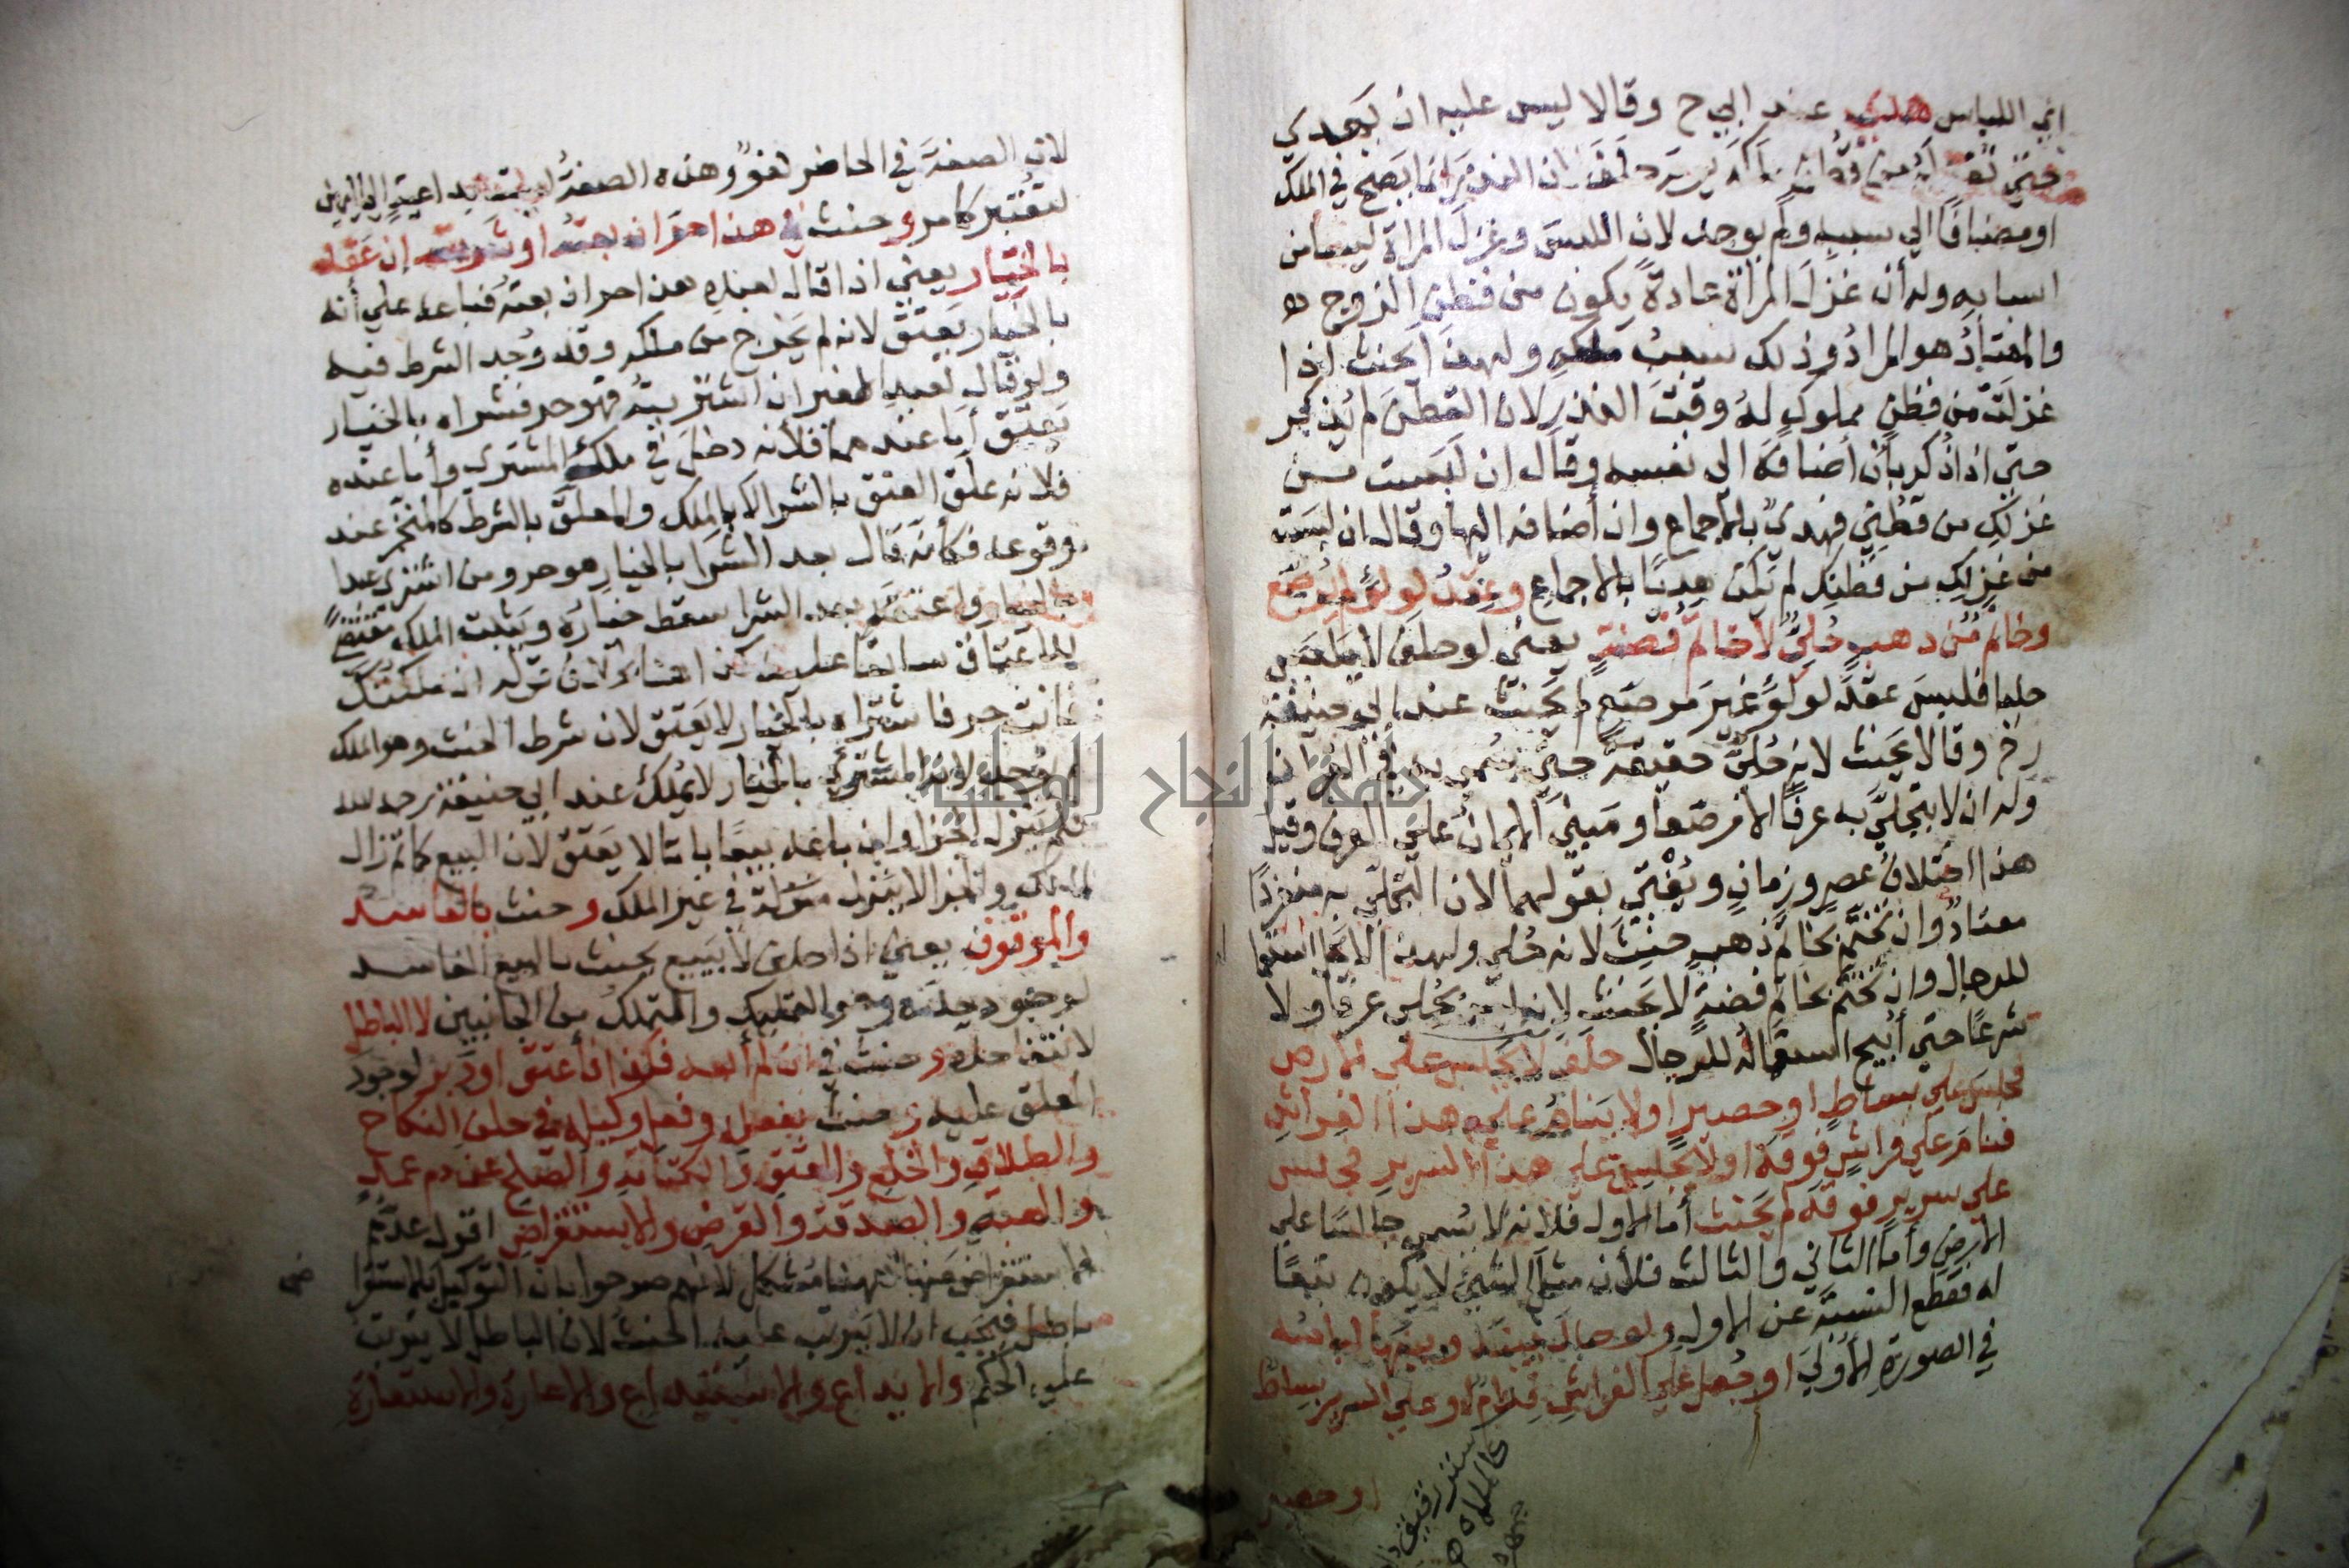 الي اللباس هدي عند ابي ح وقالا ليس عليه ان يهدي
لان النذر انما يصح في الملك
او مضافا الي سببه ولم يوجد لان اللبس وغزل المراة ليسا من
اسبابه وله أن غزل المرأة عادة يكون من قطن الزوج
والمعتاد هو المراد وذلك سبب ملكه ولهذا يحنث اذا
غزلت من قطن مملوك له وقت النذر لان القطن لم يذكر
حتي اذا ذكر بأن أضافه الى نفسه وقال ان لبست من
غزلك من قطني فهدي بالاجماع وان أضافه اليها وقال ان لبست
من غزلك من قطنك لم يكن هديا بالاجماع وعقد لولؤ لم يرصع
وخاتم من ذهب حلي لا خاتم فضة يعني لو حلف لا يلبس
حليا فلبس عقد لولؤ غير مرصع لم يحنث عند ابي حنيفة
رح وقالا يحنث لانه حلي حقيقة حتي سمي به في القرآن
وله ان لا يتحلي به عرفا الا مرصعا ومبني الايمان علي العرف وقيل
هذا اختلاف عصر وزمان ويفتي بقولهما لان التحلي به منفردا
معتاد وان تختم بخاتم ذهب حنث لانه حلي ولهذا لا يحل استعماله
للرجال وان تختم بخاتم فضة لا يحنث لانه ليس بحلي عرفا ولا
شرعا حتي أبيح استعماله للرجال حلف لا يجلس علي الارض
فجلس علي بساط او حصير او لا ينام علي هذا الفراش
فنام علي فراش فوقه او لا يجلس علي هذا السرير فجلس
علي سرير فوقه لم يحنث أما الاول فلانه لا يسمي جالسا علي
الارض وأما الثاني والثالث فلأن مثل الشيء لا يكون تبعا
له فقطع النسبة عن الاول ولو حال بينه وبينها لباسه
في الصورة الأولي او جعل علي الفراش قرام او علي السرير بساط
او حصير
لان الصفة في الحاضر لغو وهذه الصفة
لتعتبر كما مر وحنث في هذا حر ان بعته او اشتريته إن عقد
بالخيار يعني اذا قال لعبده هذا حر ان بعته فباعه علي أنه
بالخيار يعتق لانه لم يخرج من ملكه وقد وجد الشرط فيه
ولو قال لعبد الغير ان اشتريته فهو حر فشراه بالخيار
يعتق أما عندهما فلأنه دخل في ملك المشتري وأما عنده
فلأنه علق العتق بالشرا لا بالملك والمعلق بالشرط كالمنجز عند
وقوعه فكأنه قال بعد الشرا بالخيار هو حر ومن اشتري عبدا
بالخيار واعتقه بعد الشرا سقط خياره ويثبت الملك مقتضي
للاعتاق سابقا عليه
فانت حر فاشتراه بالخيار لا يعتق لان شرط الحنث وهو الملك
لم يوجد لان المشتري بالخيار لا يملك عند ابي حنيفة رحمه الله
فلم ينزل الجزا وان باعه بيعا باتا لا يعتق لان البيع كما تم زال
الملك والجزا لا ينزل في غير الملك وحنث بالفاسد
والموقوف يعني اذا حلف لا يبيع يحنث بالبيع الفاسد
لوجود حده وهو التمليك والتملك من الجانبين لا الباطل
لانتفا حده وحنث في ان لم أبعه فكذا فأعتق او دبر لوجود
المعلق عليه وحنث بفعله وفعل وكيله في حلف النكاح
والطلاق والخلع والعتق والكتابة والصلح عن دم عمد
والهبة والصدقة والقرض والاستقراض اقول عدهم
الاستقراض ههنا مشكل لانهم صرحوا بان التوكيل بالاستقراض
باطل فيجب ان لا يترتب عليه الحنث لان الباطل لا يترتب
عليه الحكم والايداع والاستيداع والاعارة والاستعارة
جامعة النجاح الوطنية